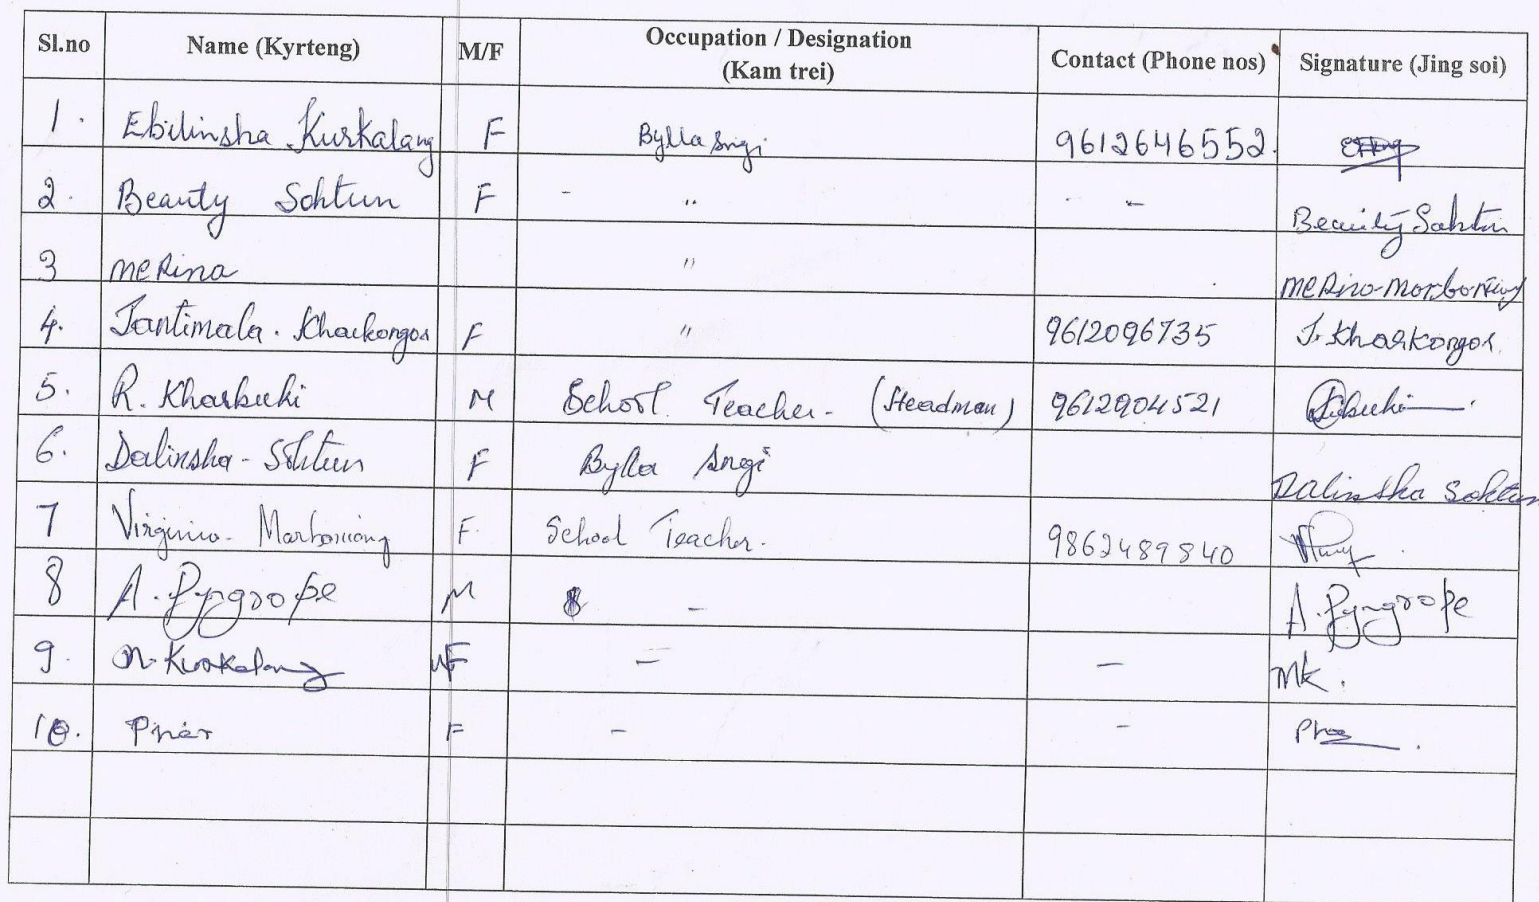 Sl.no Name (Kyrteng) M/F Occupation / Designation (Kam trei) Contact (Phone nos) Signature (Jing soi)
1. Ebilinsha Kurkalang F Bylla sngi 9612646552.
2. Beauty Sohtun F - " - Beauity Sohtun
3 meRina " meRina-marboniang
4. Jantimala. Kharkongor F " 9612096735 J. Kharkongor.
5. R. Kharbuki M School Teacher- (Headman) 9612904521
6. Dalinsha - Sohtun F Bylla Sngi Dalinsha Sohtun
7 Virginia- Marboniang F. School Teacher. 9862489840
8 A. Pyngrope M - A. Pyngrope
9. Kurkalang F - - MK.
10. Phar F - -